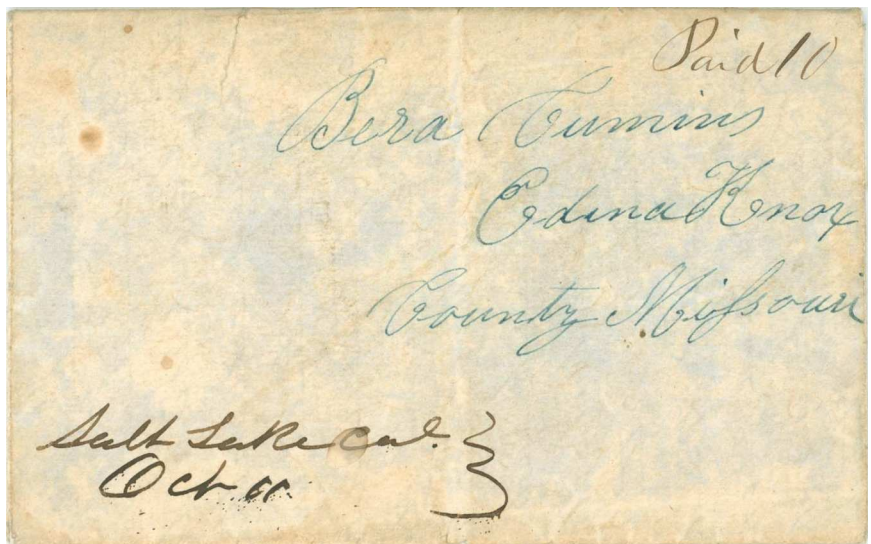 Paid 10
Bera Cumins
Edina Knox
County Missouri
Salt Lake Cal.
Oct